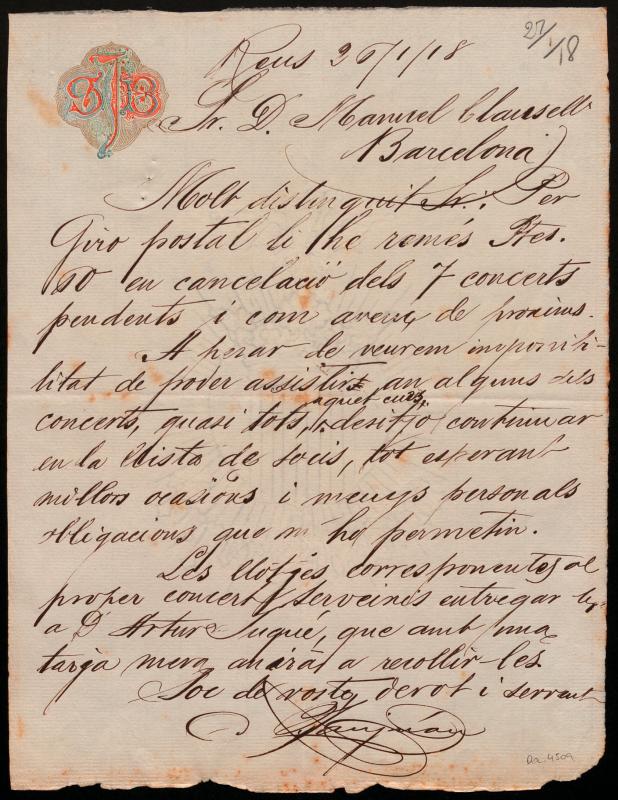 27/1/18
Reus 26/1/18
Sr. D. Manuel Clausells
Barcelona
Molt distingit Sr.: Per
Giro postal li he remés Ptes.
60 en cancelació dels 7 concerts
pendents i com avenç de proxims.
A pesar de veurem imposibi-
litat de poder assistir an alguns dels
aquet curs,
concerts, quasi tots, desitjo continuar
en la llista de socis, tot esperant
millors ocasións i menys personals
obligacions que m ho permetin.
Les llotjes corresponentes al
proper concert serveixis entregar les
a D. Artur Sugué, que amb una
tarja meva anirà a recollir-les.
Soc de vosté devot i servent
Da. 4509